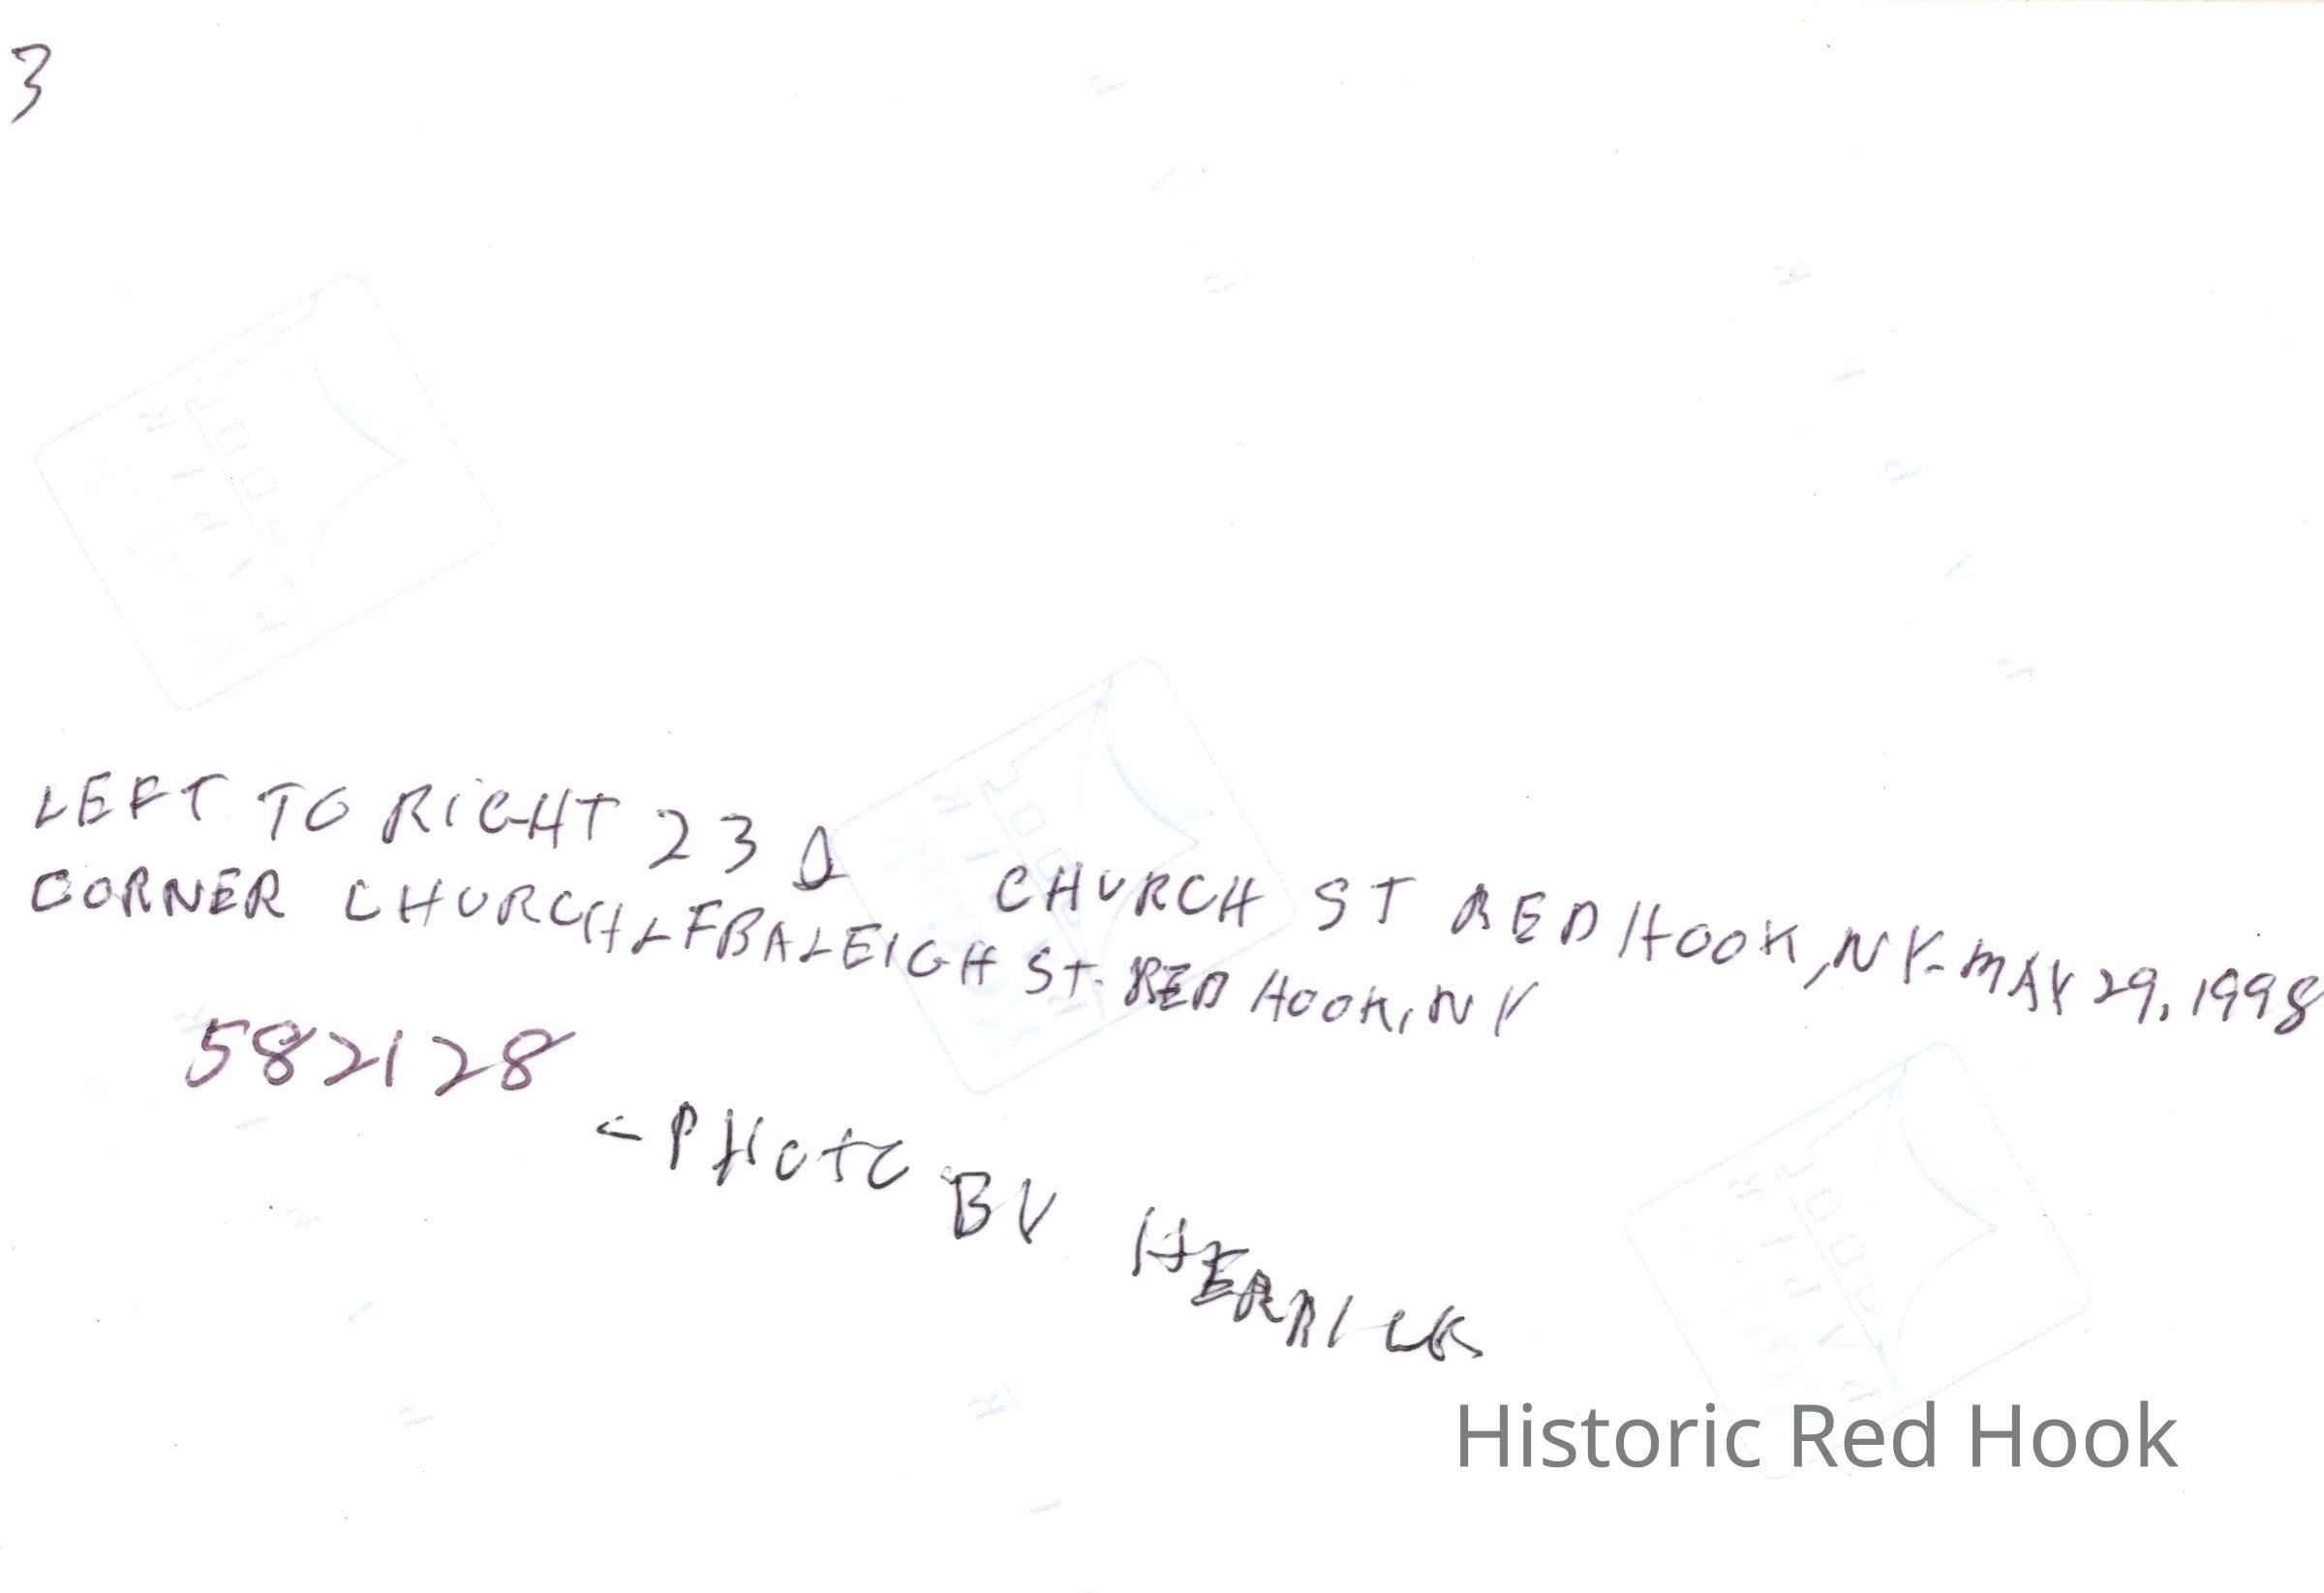 3
LEFT TO RIGHT 23 CHURCH ST RED HOOK, NY- MAY 29, 1998
CORNER CHURCH ST. RED HOOK, NY
582128
- PHOTO BY HERRICK
Historic Red Hook